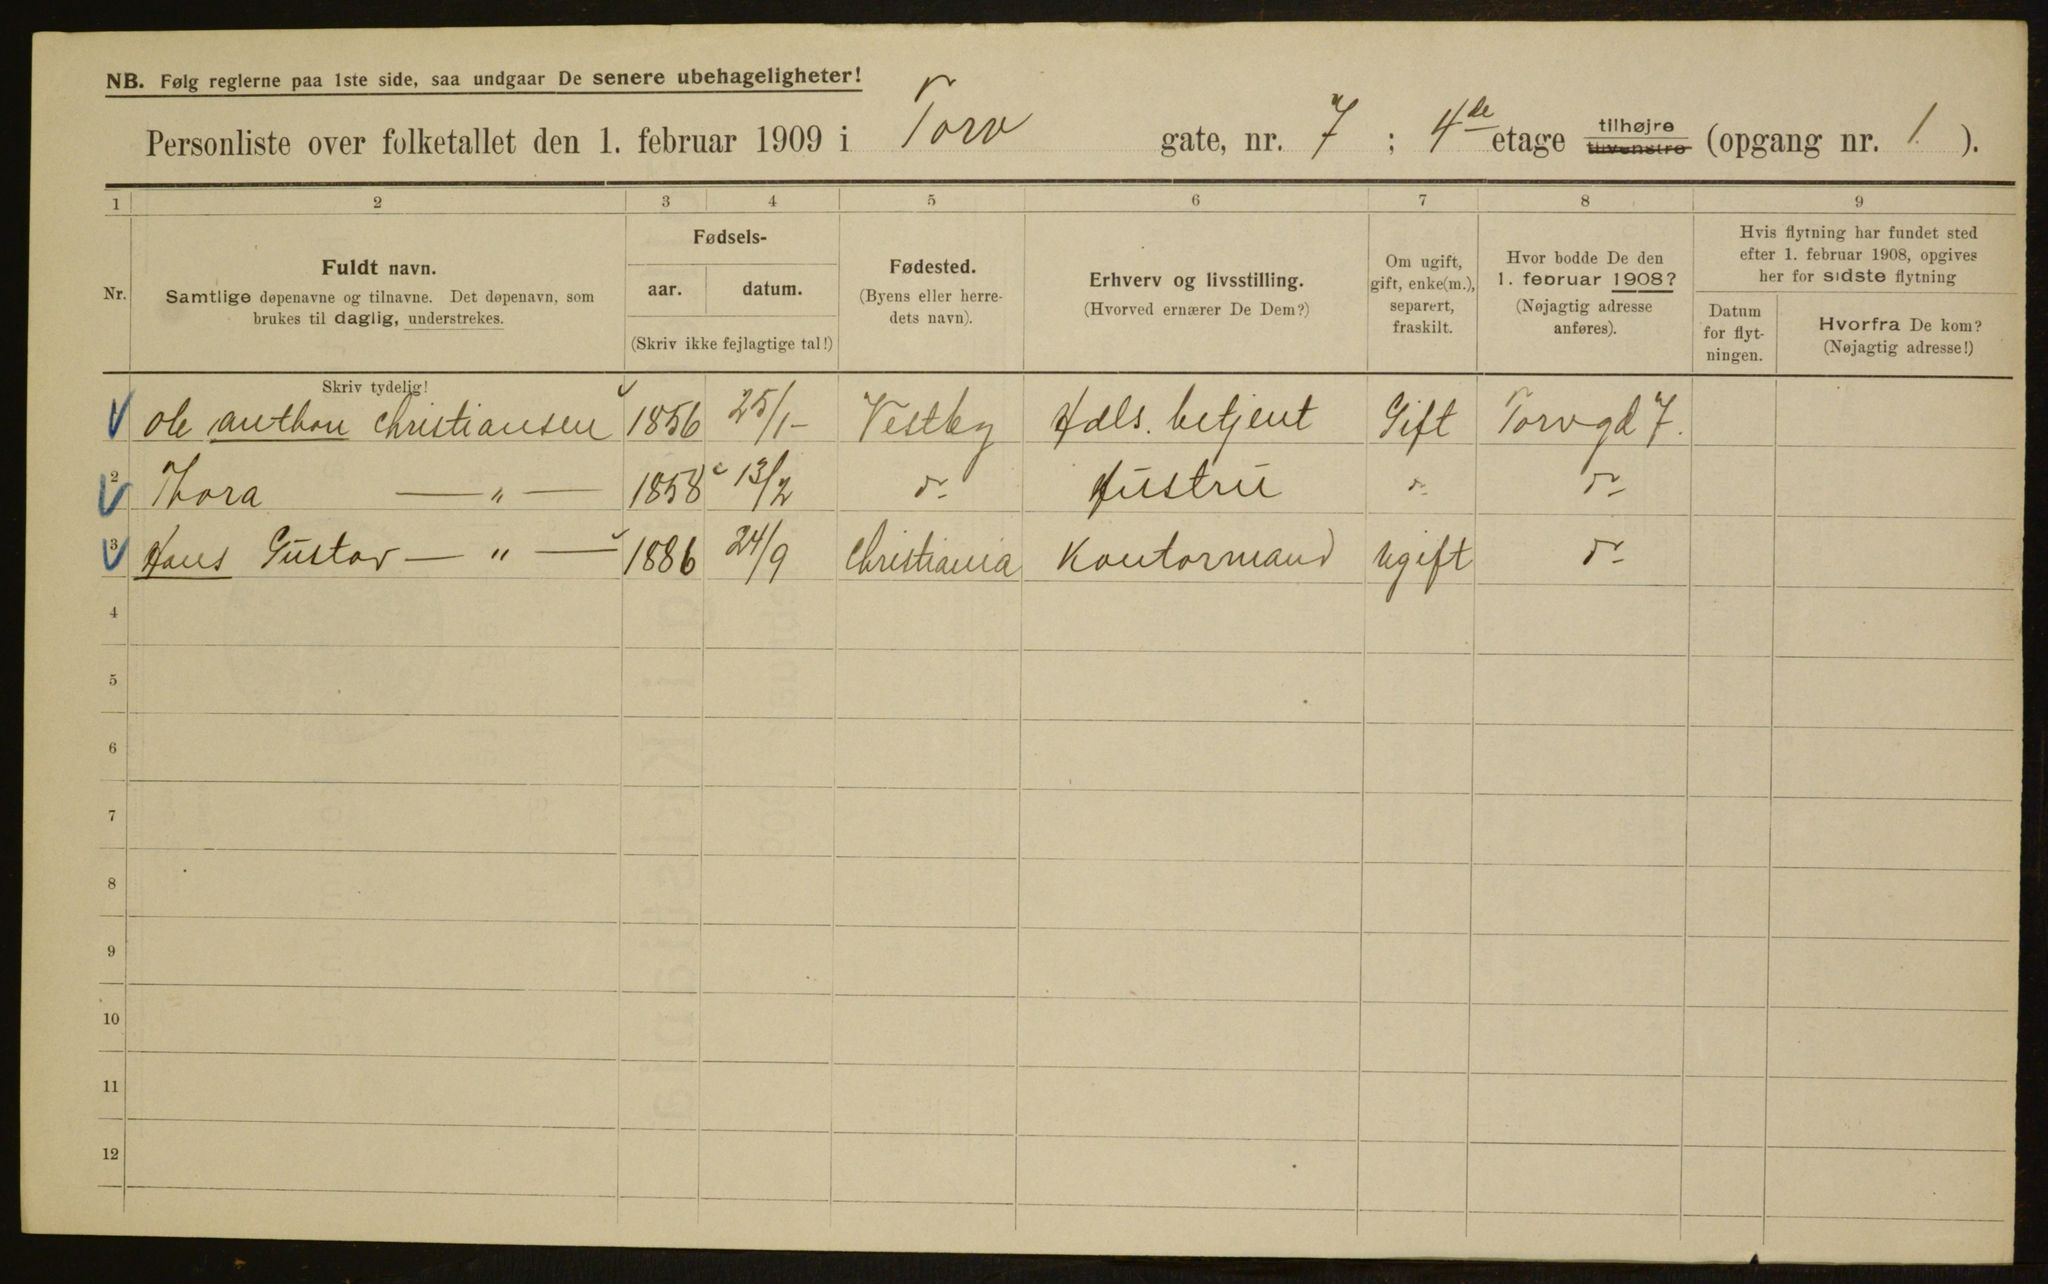 NB. Følg reglerne paa 1ste side, saa undgaar De senere ubehageligheter!
Personliste over folketallet den 1. februar 1909 i Torv gate, nr. 7; 4de etage tilhøjre tilvenstre (opgang nr. 1).
1 2 3 4 5 6 7 8 9
Nr.
Fuldt navn.
Samtlige døpenavne og tilnavne. Det døpenavn, som
brukes til daglig, understrekes.
Fødsels-
aar. datum.
(Skriv ikke fejlagtige tal!)
Fødested.
(Byens eller herre-
dets navn).
Erhverv og livsstilling.
(Hvorved ernærer De Dem?)
Om ugift,
gift, enke(m.),
separert,
fraskilt.
Hvor bodde De den
1. februar 1908?
(Nøjagtig adresse
anføres).
Hvis flytning har fundet sted
efter 1. februar 1908, opgives
her for sidste flytning
Datum
for flyt-
ningen.
Hvorfra De kom?
(Nøjagtig adresse!)
Skriv tydelig!
Ole Anthon Christiansen 1856 25/1- Vestby Hdls. betjent Gift Torvgd 7.
2 Thora — „ — 1858 13/2 do Hustru do do
3 Hans Gustav — „ — 1886 24/9 Christiania Kontormand Ugift do
4
5
6
7
8
9
10
11
12